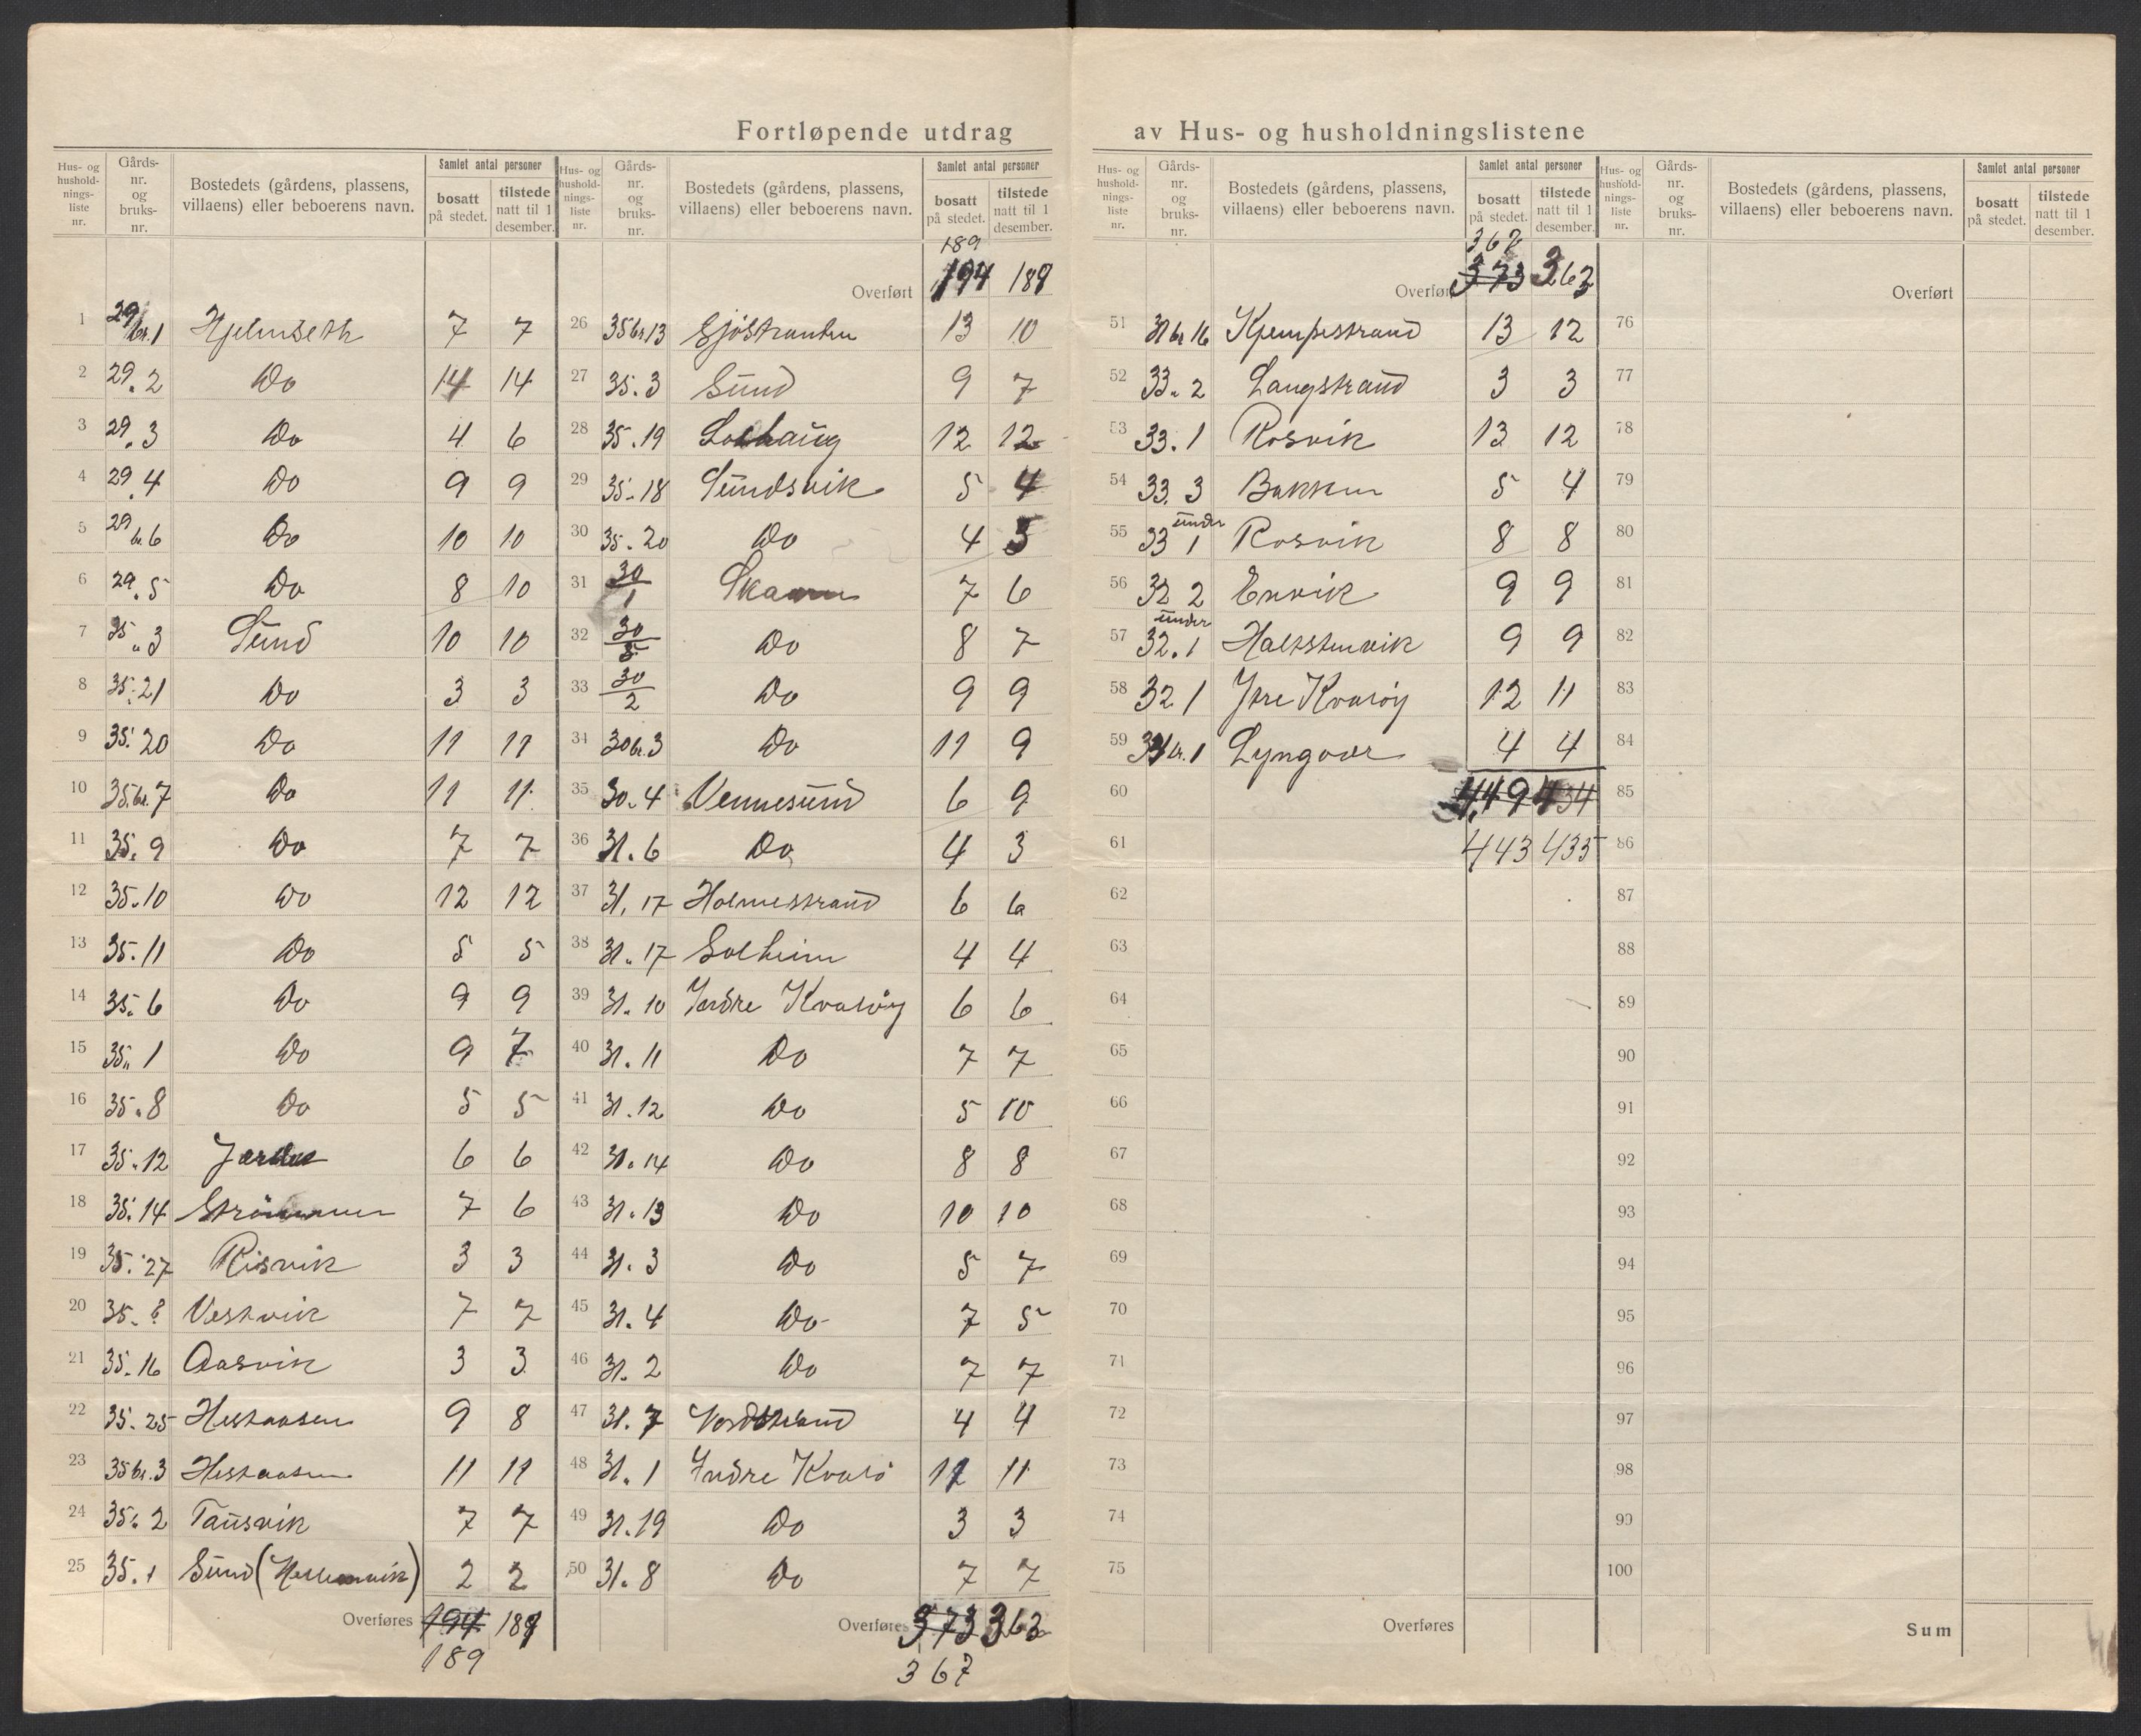 Fortløpende utdrag av Hus- og husholdningslistene
Hus- og hushold-nings-liste nr. Gårds-nr. og bruks-nr. Bostedets (gårdens, plassens, villaens) eller beboerens navn. Samlet antal personer bosatt på stedet. tilstede natt til 1 desember.
1 29 br. 1 Hjelmseth 7 7
2 29. 2 Do 14 14
3 29. 3 Do 4 6
4 29. 4 Do 9 9
5 29 br. 6 Do 10 10
6 29. 5 Do 8 10
7 35. 3 Sund 10 10
8 35. 21 Do 3 3
9 35. 20 Do 11 11
10 35 br. 7 Do 11 11
11 35. 9 Do 7 7
12 35. 10 Do 12 12
13 35. 11 Do 5 5
14 35. 6 Do 9 9
15 35. 1 Do 9 7
16 35. 8 Do 5 5
17 35. 12 6 6
18 35. 14 Strömmen 7 6
19 35. 27 Risvik 3 3
20 35. ? Vestvik 7 7
21 35. 16 Aasvik 3 3
22 35. 25 Hestaasen 9 8
23 35 br. 3 Hestaasen 11 11
24 35. 2 Tausvik 7 7
25 35. 1 Sund ( ) 2 2
Overføres 194 189
189
Hus- og hushold-nings-liste nr. Gårds-nr. og bruks-nr. Bostedets (gårdens, plassens, villaens) eller beboerens navn. Samlet antal personer bosatt på stedet. tilstede natt til 1 desember.
189
Overført 194 189
26 35 br. 13 Sjöstranden 13 10
27 35. 3 Sund 9 7
28 35. 19 Solhaug 12 12
29 35. 18 Sundsvik 5 4
30 35. 20 Do 4 3
31 30/1 Skaren 7 6
32 30/5 Do 8 7
33 30/2 Do 9 9
34 30 br. 3 Do 11 9
35 30. 4 Vennesund 6 9
36 31. 6 Do 4 3
37 31. 17 Holmestrand 6 6
38 31. 17 Solheim 4 4
39 31. 10 Indre Kvaløy 6 6
40 31. 11 Do 7 7
41 31. 12 Do 5 10
42 31. 14 Do 8 8
43 31. 13 Do 10 10
44 31. 3 Do 5 7
45 31. 4 Do 7 5
46 31. 2 Do 7 7
47 31. 7 Nordstrand 4 4
48 31. 1 Indre Kvalø 12 11
49 31. 19 Do 3 3
50 31. 8 Do 7 7
Overføres 373 363
367
Hus- og hushold-nings-liste nr. Gårds-nr. og bruks-nr. Bostedets (gårdens, plassens, villaens) eller beboerens navn. Samlet antal personer bosatt på stedet. tilstede natt til 1 desember.
367
Overført 373 363
51 31 br 16 Kjempestrand 13 12
52 33. 2 Langstrand 3 3
53 33. 1 Rosvik 13 12
54 33. 3 Bakken 5 4
55 33 under 1 Rosvik 8 8
56 32 2 Envik 9 9
57 under 32. 1 Halvstenvik 9 9
58 32 1 Ytre Kvaløy 12 11
59 34 br. 1 Lyngvær 4 4
60 449 434
61 443 435
62
63
64
65
66
67
68
69
70
71
72
73
74
75
Overføres
Hus- og hushold-nings-liste nr. Gårds-nr. og bruks-nr. Bostedets (gårdens, plassens, villaens) eller beboerens navn. Samlet antal personer bosatt på stedet. tilstede natt til 1 desember.
Overført
76
77
78
79
80
81
82
83
84
85
86
87
88
89
90
91
92
93
94
95
96
97
98
99
100
Sum